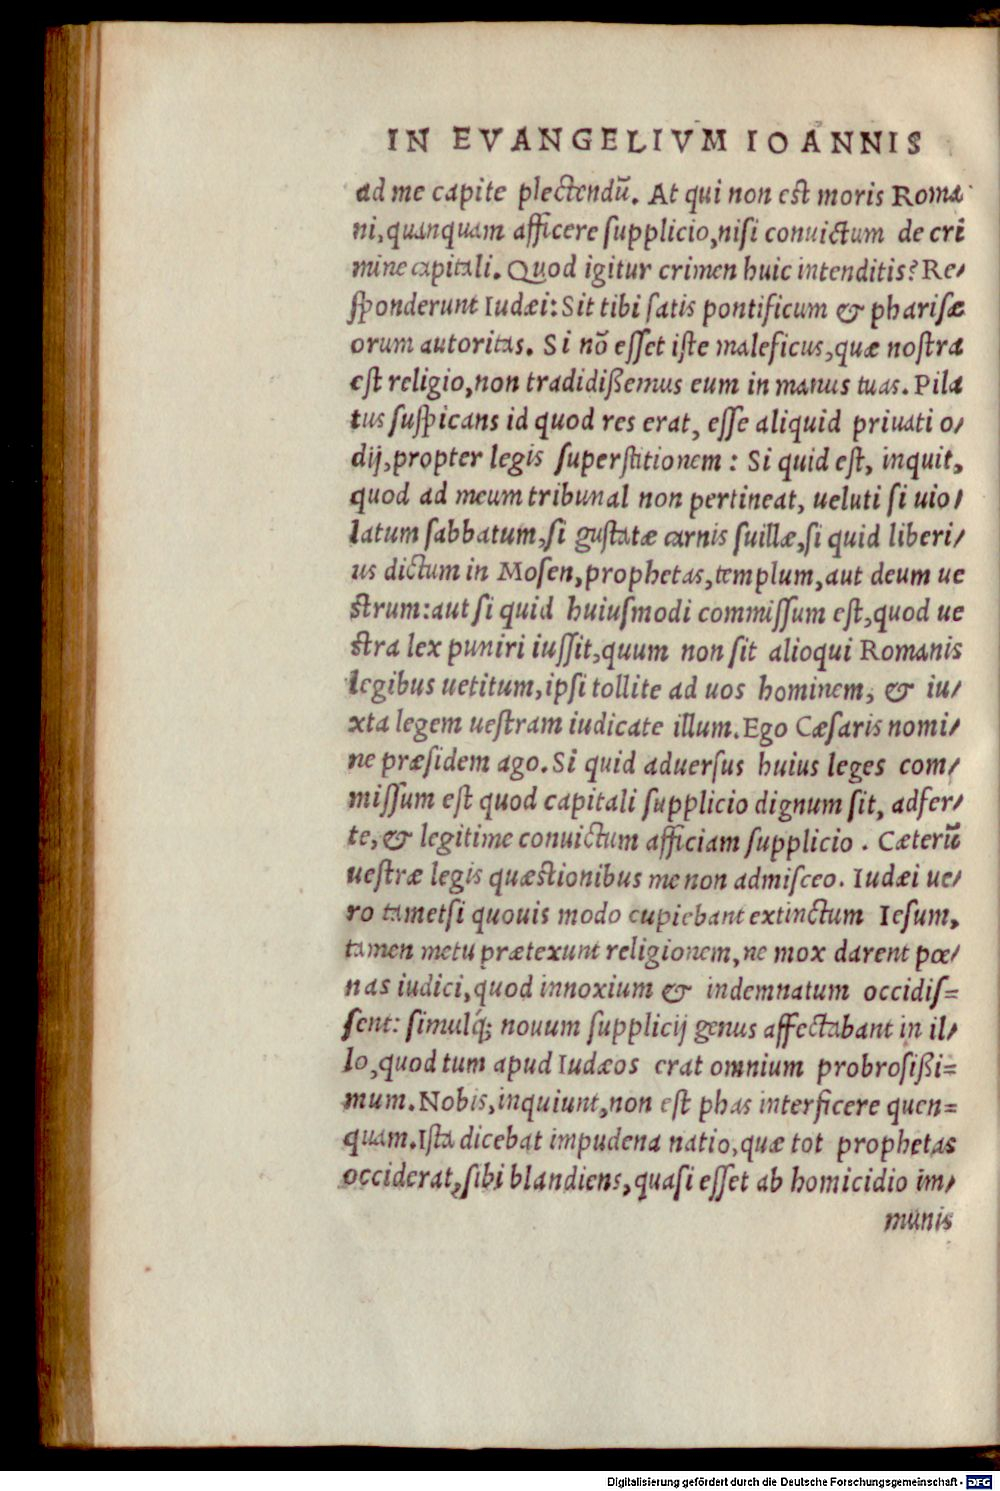 IN EVANGELIVM IOANNIS
ad me capite plectendū. At qui non est moris Roma
ni, quanquam afficere supplicio, nisi conuictum de cri
mine capitali. Quod igitur crimen huic intenditis? Re⸗
sponderunt Iudæi: Sit tibi satis pontificum & pharisæ
orum autoritas. Si nō esset iste maleficus, quæ nostra
est religio, non tradidißemus eum in manus tuas. Pila
tus suspicans id quod res erat, esse aliquid priuati o⸗
dij, propter legis superstitionem: Si quid est, inquit,
quod ad meum tribunal non pertineat, ueluti si uio⸗
latum sabbatum, si gustatæ carnis suillæ, si quid liberi⸗
us dictum in Mosen, prophetas, templum, aut deum ue
strum: aut si quid huiusmodi commissum est, quod ue
stra lex puniri iussit, quum non sit alioqui Romanis
legibus uetitum, ipsi tollite ad uos hominem, & iu⸗
xta legem uestram iudicate illum. Ego Cæsaris nomi⸗
ne præsidem ago. Si quid aduersus huius leges com⸗
missum est quod capitali supplicio dignum sit, adfer⸗
te, & legitime conuictum afficiam supplicio. Cæterū
uestræ legis quæstionibus me non admisceo. Iudæi ue⸗
ro tametsi quouis modo cupiebant extinctum Iesum,
tamen metu prætexunt religionem, ne mox darent pœ⸗
nas iudici, quod innoxium & indemnatum occidis⸗
sent: simulq́; nouum supplicij genus affectabant in il⸗
lo, quod tum apud Iudæos erat omnium probrosißi⸗
mum. Nobis, inquiunt, non est phas interficere quen⸗
quam. Ista dicebat impudena natio, quæ tot prophetas
occiderat, sibi blandiens, quasi esset ab homicidio im⸗
munis
Digitalisierung gefördert durch die Deutsche Forschungsgemeinschaft - DFG